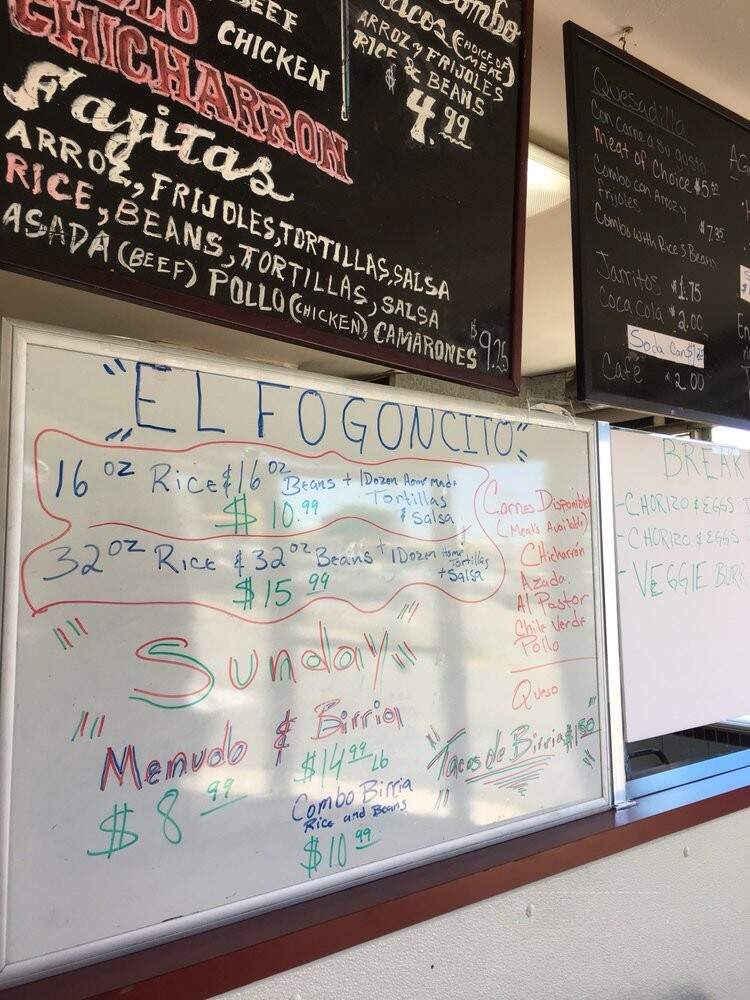 BEEF
CHICKEN
CHICHARRON
Fajitas
ARROZ, FRIJOLES, TORTILLAS, SALSA
RICE, BEANS, TORTILLAS, SALSA
ASADA (BEEF) POLLO (CHICKEN) CAMARONES $9.25
Combo
Tacos (CHOICE OF MEAT)
ARROZ Y FRIJOLES
RICE & BEANS
$4.99
Quesadilla
Con carne a su gusto
meat of Choice $5.50
Combo con Arroz y
Frijoles $7.35
Combo with Rice & Beans
Jarritos $1.75
Coca cola $2.00
Soda Can
Café $2.00
"EL FOGONCITO"
16 oz Rice & 16 oz Beans + 1 Dozen Home made
Tortillas
& Salsa
$10.99
32 oz Rice & 32 oz Beans + 1 Dozen Home
Tortillas
+ Salsa
$15.99
Carnes Disponibles
(Meats Available)
Chicharrón
Azada.
Al Pastor
Chile Verde
Pollo
Queso
"Sunday"
"Menudo & Birria
$8.99
$14.99 Lb
Combo Birria
Rice and Beans
$10.99
"Tacos de Birria $1.50"
BREAK
-CHORIZO & EGGS
-CHORIZO & EGGS
-VEGGIE BURR